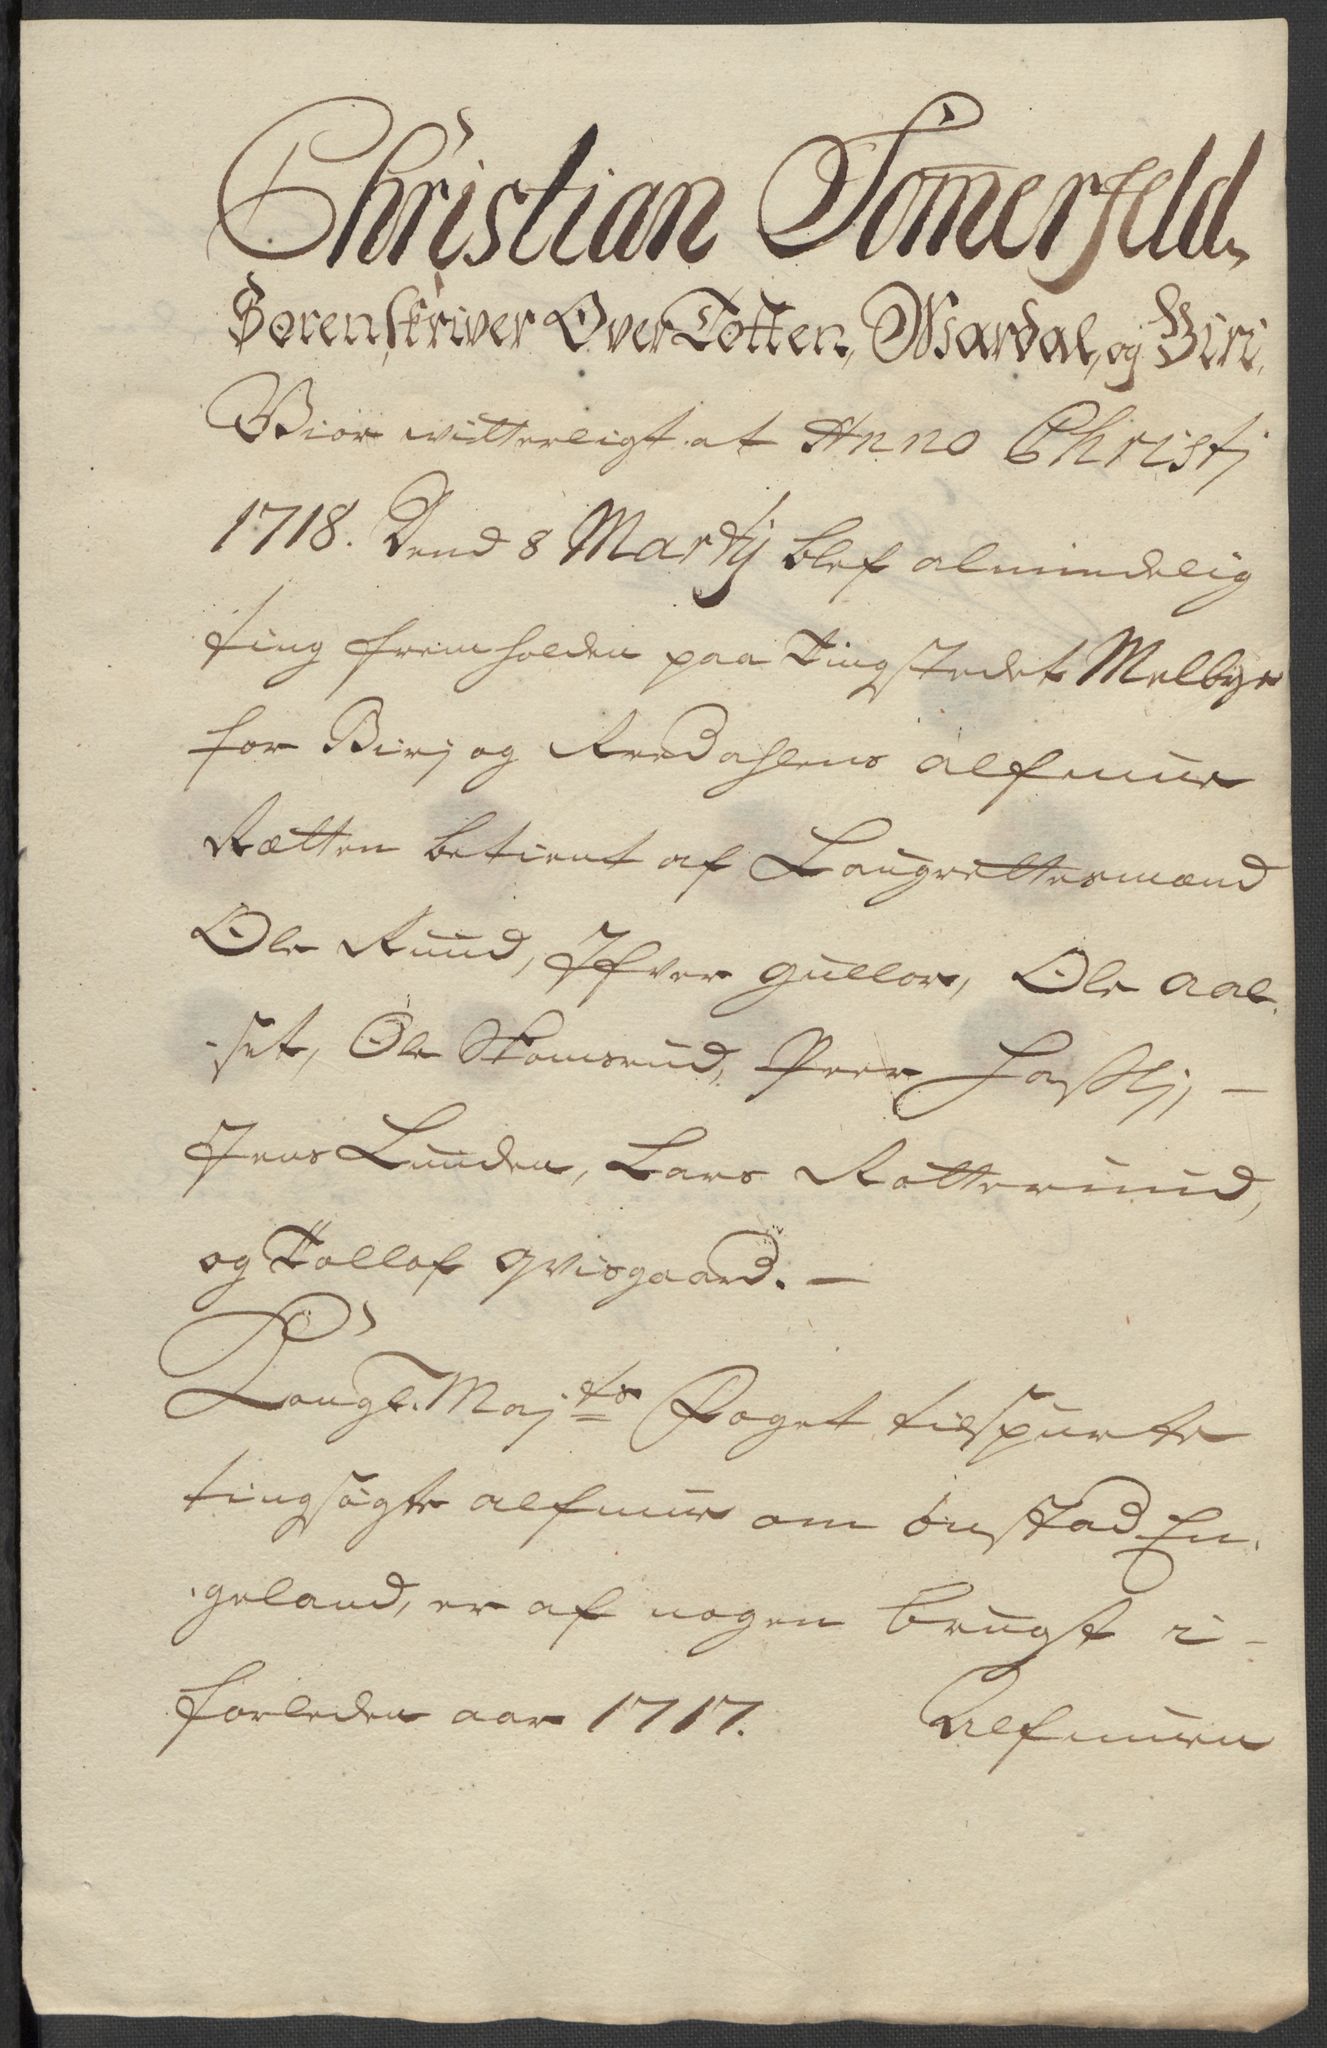 Christian Somerfeld,
Sorenskriver Over Totten, Wardal, og Biri,
Giør witterligt at Anno Christj
1718. Dend 8 Martij blef almindelig
ting fremholden paa Tingstedet Melbye
for Birj og Rredahlens alfmue
Rætten betient af Laugrettesmænd
Ole Ruud, Ifver Gullor, Ole Aal-
-set, Ole Skomsrud, Peer Hasslj, -
Jens Lunden, Lars Rotterund,
og Tollof Qvisgaard. -
Kongl. Maj:ts Foget tilspurte
tingsøgte alfmue om Onstad En-
-geland, er af nogen brugt i -
forleden aar 1717. Alfmuen